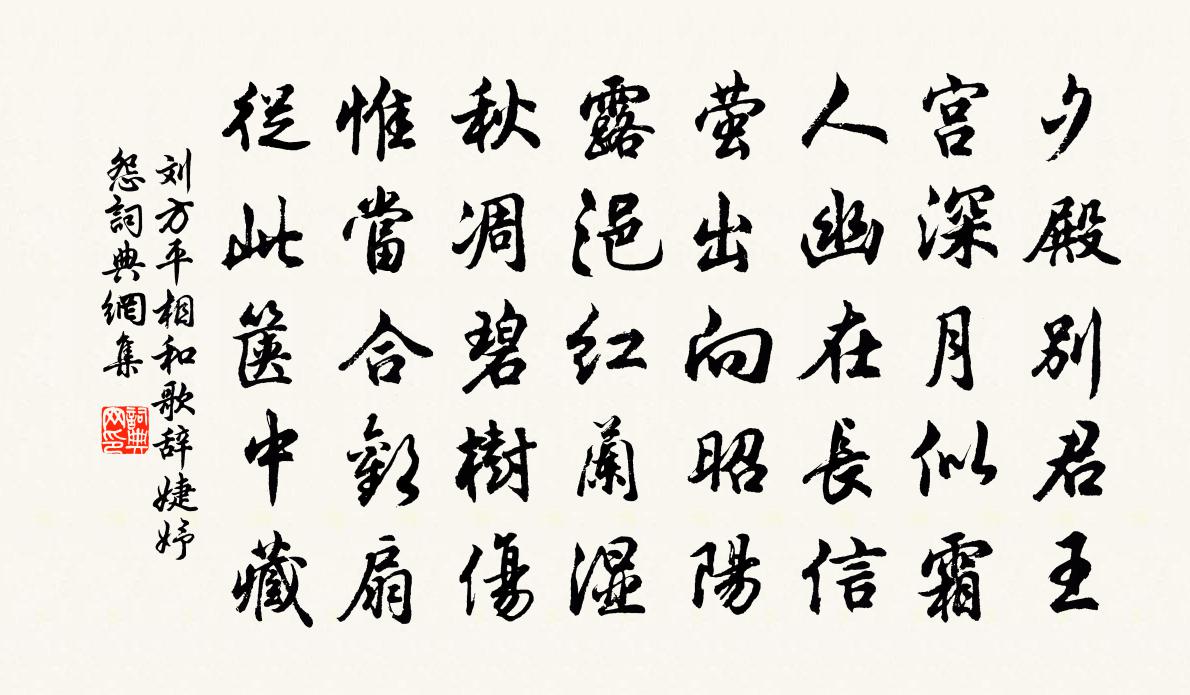 夕殿别君王
宫深月似霜
人幽在長信
萤出向昭陽
露浥红蘭湿
秋凋碧樹傷
惟當合歡扇
従此篋中藏
刘方平相和歌辞婕妤
怨詞典網集
詞典
网印